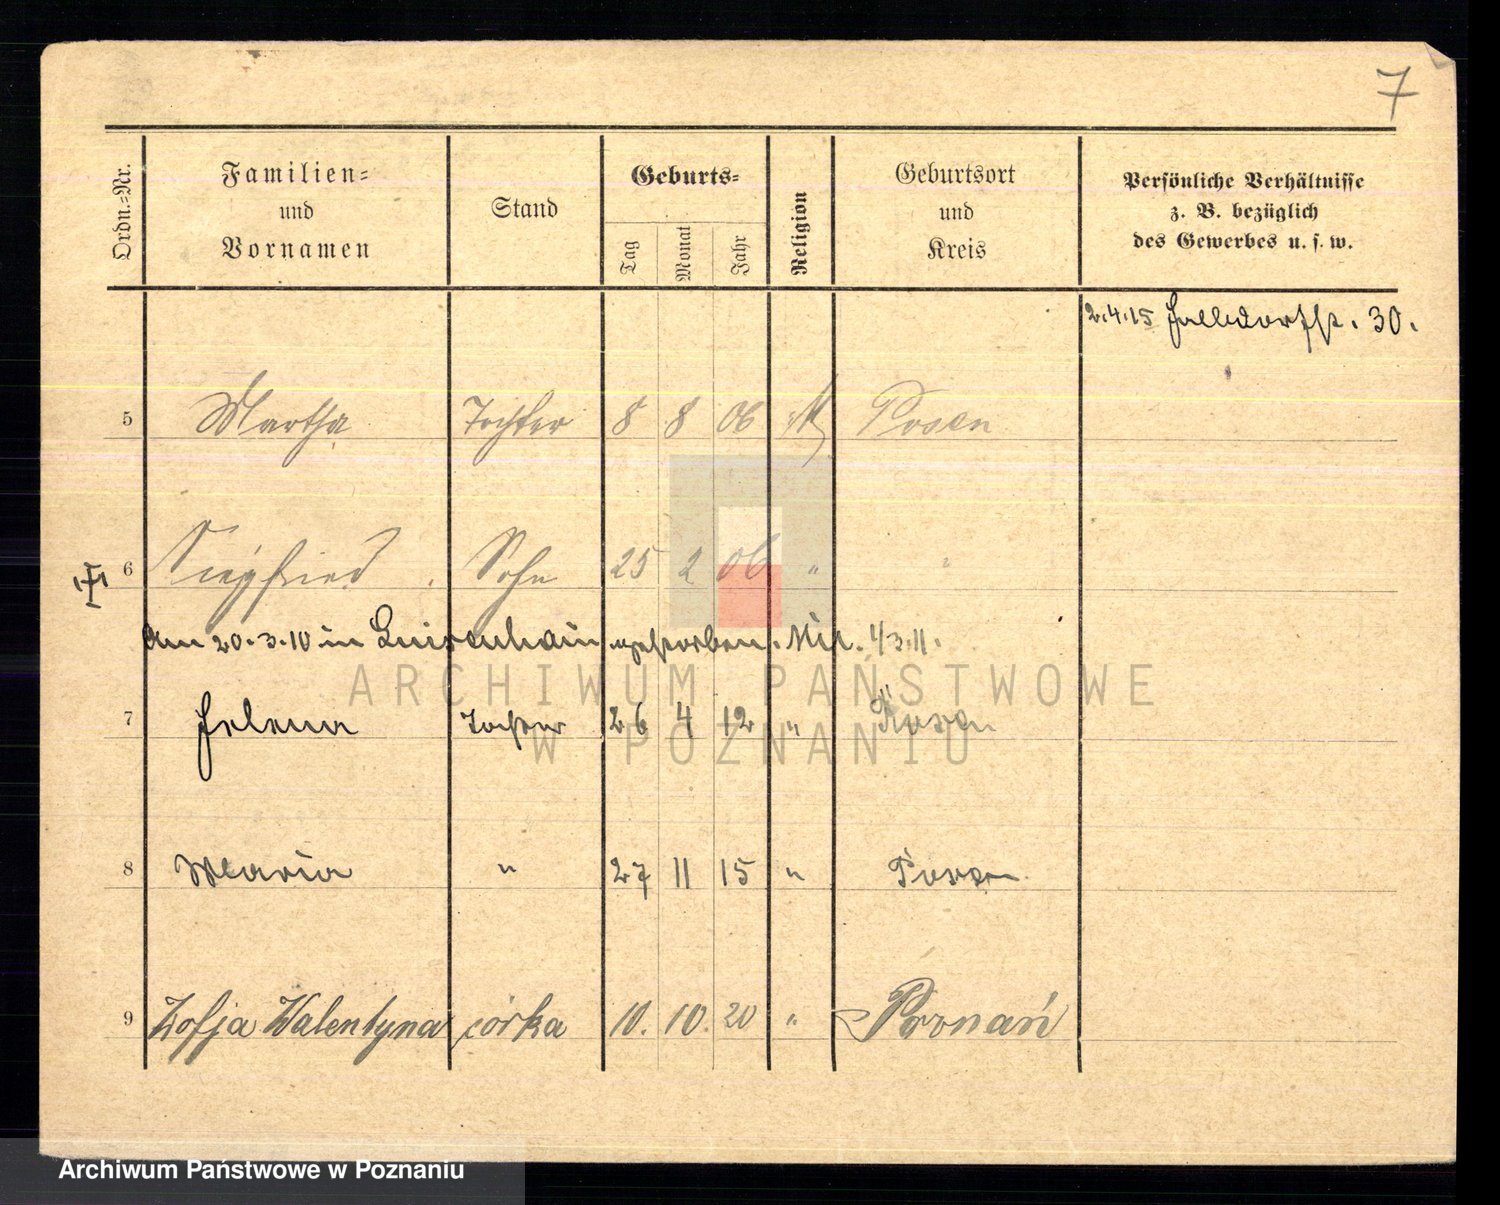 7
Ordn.-Nr.
Familien-
und
Vornamen
Stand
Geburts-
Tag
Monat
Jahr
Religion
Geburtsort
und
Kreis
Persönliche Verhältnisse
z. B. bezüglich
des Gewerbes u. s. w.
2.4.15 30.
5 Martha Tochter 8 8 06 Posen
6 Siegfried Sohn 25 2 06 " "
am 20.3.10 in Luisenhain gestorben. 4/3.11.
7 Helena Tochter 26 4 12 " Posen
8 Maria " 27 11 15 " Posen
9 Zofja Walentyna córka 10. 10. 20 " Poznań
ARCHIWUM PAŃSTWOWE
W POZNANIU
Archiwum Państwowe w Poznaniu